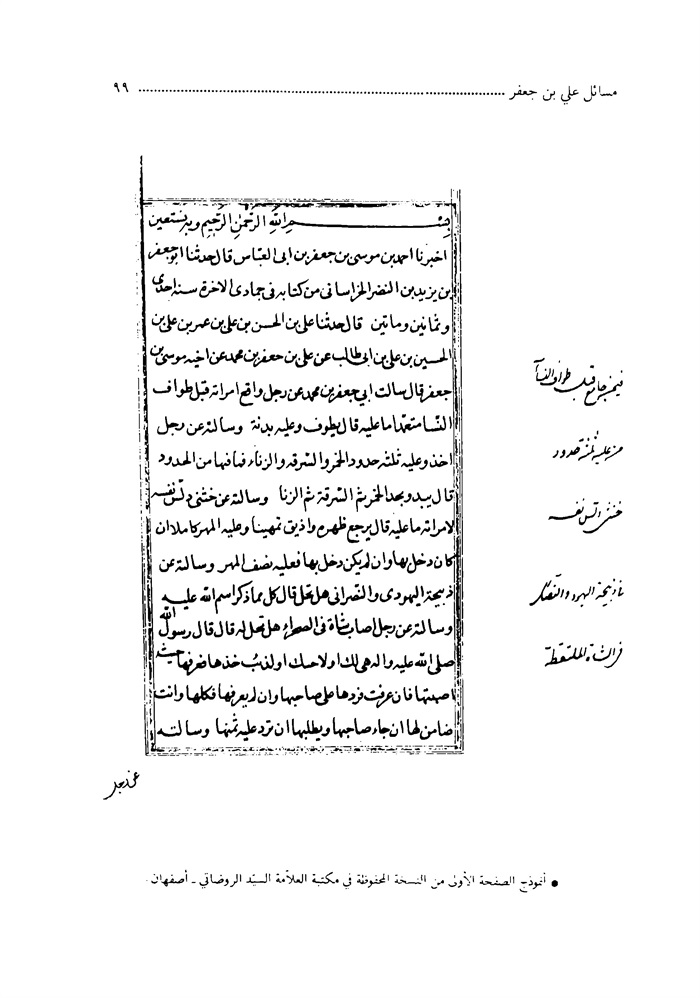 مسائل علي بن جعفر ........................................ ٩٩
بسم الله الرحمن الرحيم وبه نستعين
اخبرنا احمد بن موسى بن جعفر بن ابى العباس قال حدثنا ابو جعفر
بن يزيد بن النضر الخراسانى من كتابه فى جمادى الاخرة سنة احدى
وثمانين وماتين قال حدثنا على بن الحسن بن على بن عمر بن على بن
الحسين بن على بن ابى طالب عن على بن جعفر بن محمد عن اخيه موسى بن
جعفر قال سالت ابي جعفر بن محمد عن رجل واقع امراته قبل طواف
النسا متعمدا ما عليه قال يطوف وعليه بدنة وسالته عن رجل
اخذ وعليه ثلثه حدود الخمر والسرقه والزناء فبأيها من الحدود
قال يبدو بحد الخمر ثم السرقة ثم الزنا وسالته عن خنثى دلس نفسه
لامراته ما عليه قال يرجع ظهره واذيق تمهينا وعليه المهر كاملا ان
كان دخل بها وان لم يكن دخل بها فعليه نصف المهر وسالته عن
ذبيحة اليهودى والنصرانى هل تحل قال كل مما ذكر اسم الله عليه
وسالته عن رجل اصاب شاة فى الصحراء هل تحل له قال قال رسول الله
صلى الله عليه واله هى لك او لاخيك او للذئب خذها فعرفها حيث
اصبتها فان عرفت فردها على صاحبها وان لم يعرفها فكلها وانت
ضامن لها ان جاء صاحبها ويطلبها ان ترد عليه ثمنها وسالته
فيمن جامع قبل طواف النسآ
من عليه ثلثة حدود
خنثى دلس نفسه
ذبيحة اليهود والنصارى
فى الشاة الملتقطة
عن رجل
● أنموذج الصفحة الأولى من النسخة المحفوظة في مكتبة العلاّمة السيّد الروضاتي ـ أصفهان .